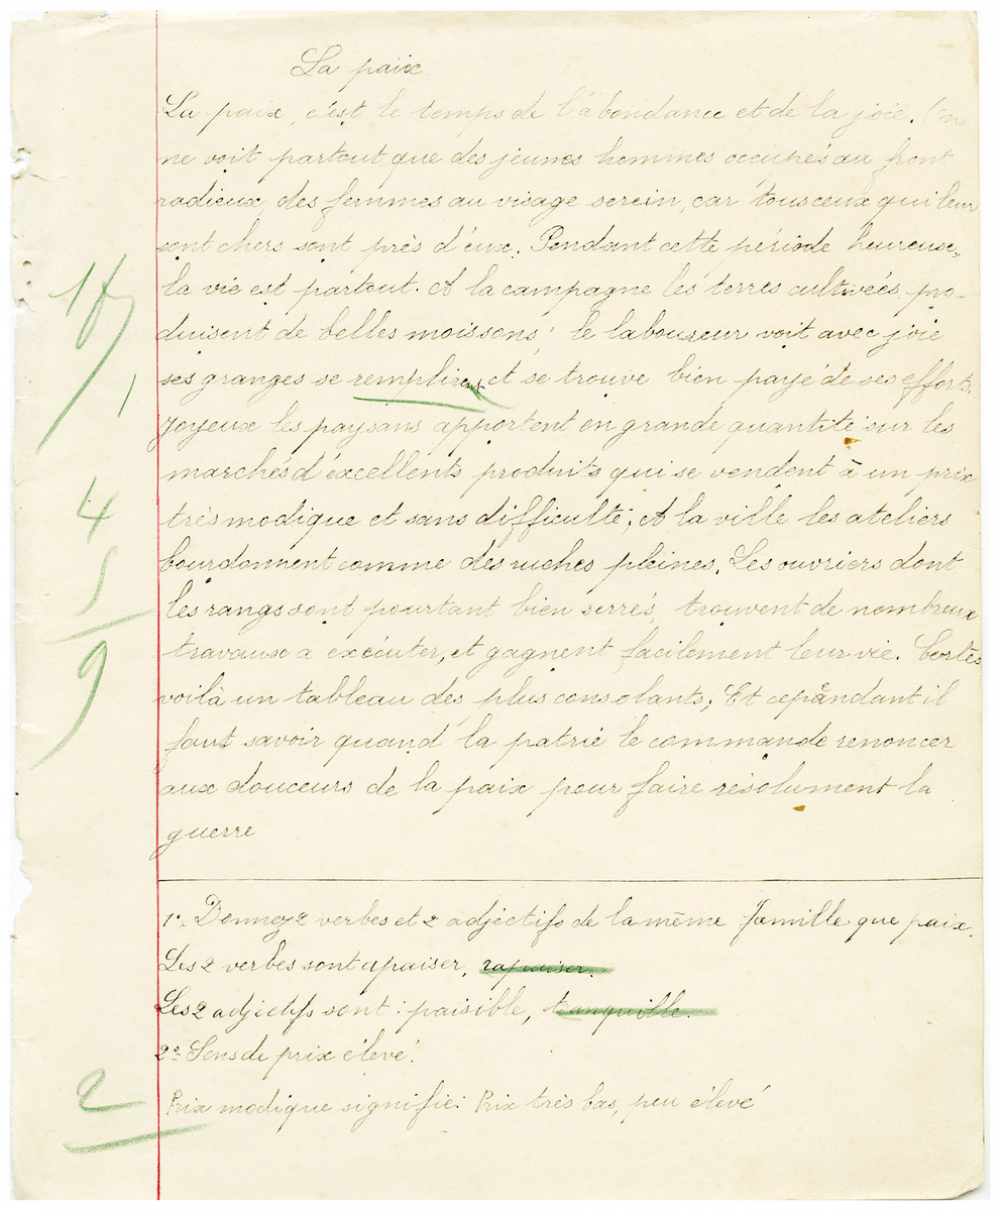 La paix
La paix, c'est le temps de l'abondance et de la joie. On
ne voit partout que des jeunes hommes occupés au front
radieux, des femmes au visage serein, car tous ceux qui leur
sont chers sont près d'eux. Pendant cette période heureuse,
la vie est partout. A la campagne les terres cultivées, pro-
duisent de belles moissons; le laboureur voit avec joie
ses granges se remplirent et se trouve bien payé de ses efforts.
Joyeux les paysans apportent en grande quantité sur les
marchés d'excellents produits qui se vendent à un prix
très modique et sans difficulté; A la ville les ateliers
bourdonnent comme des ruches pleines. Les ouvriers dont
les rangs sont pourtant bien serrés, trouvent de nombreux
travaux a exécuter, et gagnent facilement leur vie. Certes
voilà un tableau des plus consolants; Et cependant il
faut savoir quand la patrie le commande renoncer
aux douceurs de la paix pour faire résolument la
guerre
1º. Donnez 2 verbes et 2 adjectifs de la même famille que paix.
Les 2 verbes sont apaiser, rapaiser.
Les 2 adjectifs sont : paisible, tranquille.
2º Sens de prix élevé.
Prix modique signifie: Prix très bas, peu élevé
1
4
5
9
2